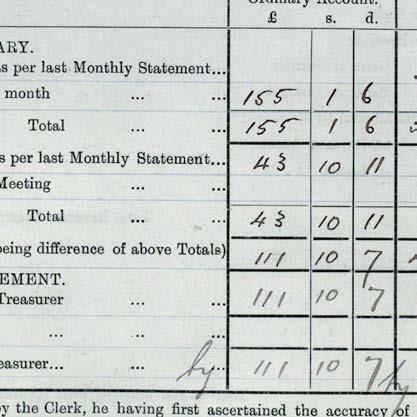 Ordinary Account.
£ s. d.
ARY.
s per last Monthly Statement...
month ... ... 155 1 6
Total ... ... 155 1 6
s per last Monthly Statement... 43 10 11
Meeting ... ...
Total ... ... 43 10 11
being difference of above Totals) 111 10 7
EMENT.
Treasurer ... ... 111 10 7
... ...
easurer... ... by 111 10 7 by
by the Clerk, he having first ascertained the accuracy of